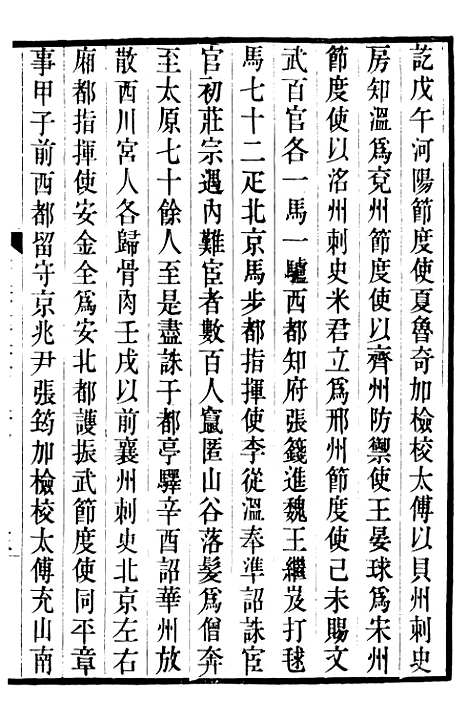 訖戊午河陽節度使夏魯奇加檢校太傅以貝州刺史
房知溫爲兗州節度使以齊州防禦使王晏球爲宋州
節度使以洺州刺史米君立爲邢州節度使己未賜文
武百官各一馬一驢西都知府張籛進魏王繼岌打毬
馬七十二疋北京馬步都指揮使李從溫奉準詔誅宦
官初莊宗遇內難宦者數百人竄匿山谷落髮爲僧奔
至太原七十餘人至是盡誅于都亭驛辛酉詔華州放
散西川宮人各歸骨肉壬戌以前襄州刺史北京左右
廂都指揮使安金全爲安北都護振武節度使同平章
事甲子前西都留守京兆尹張筠加檢校太傅充山南